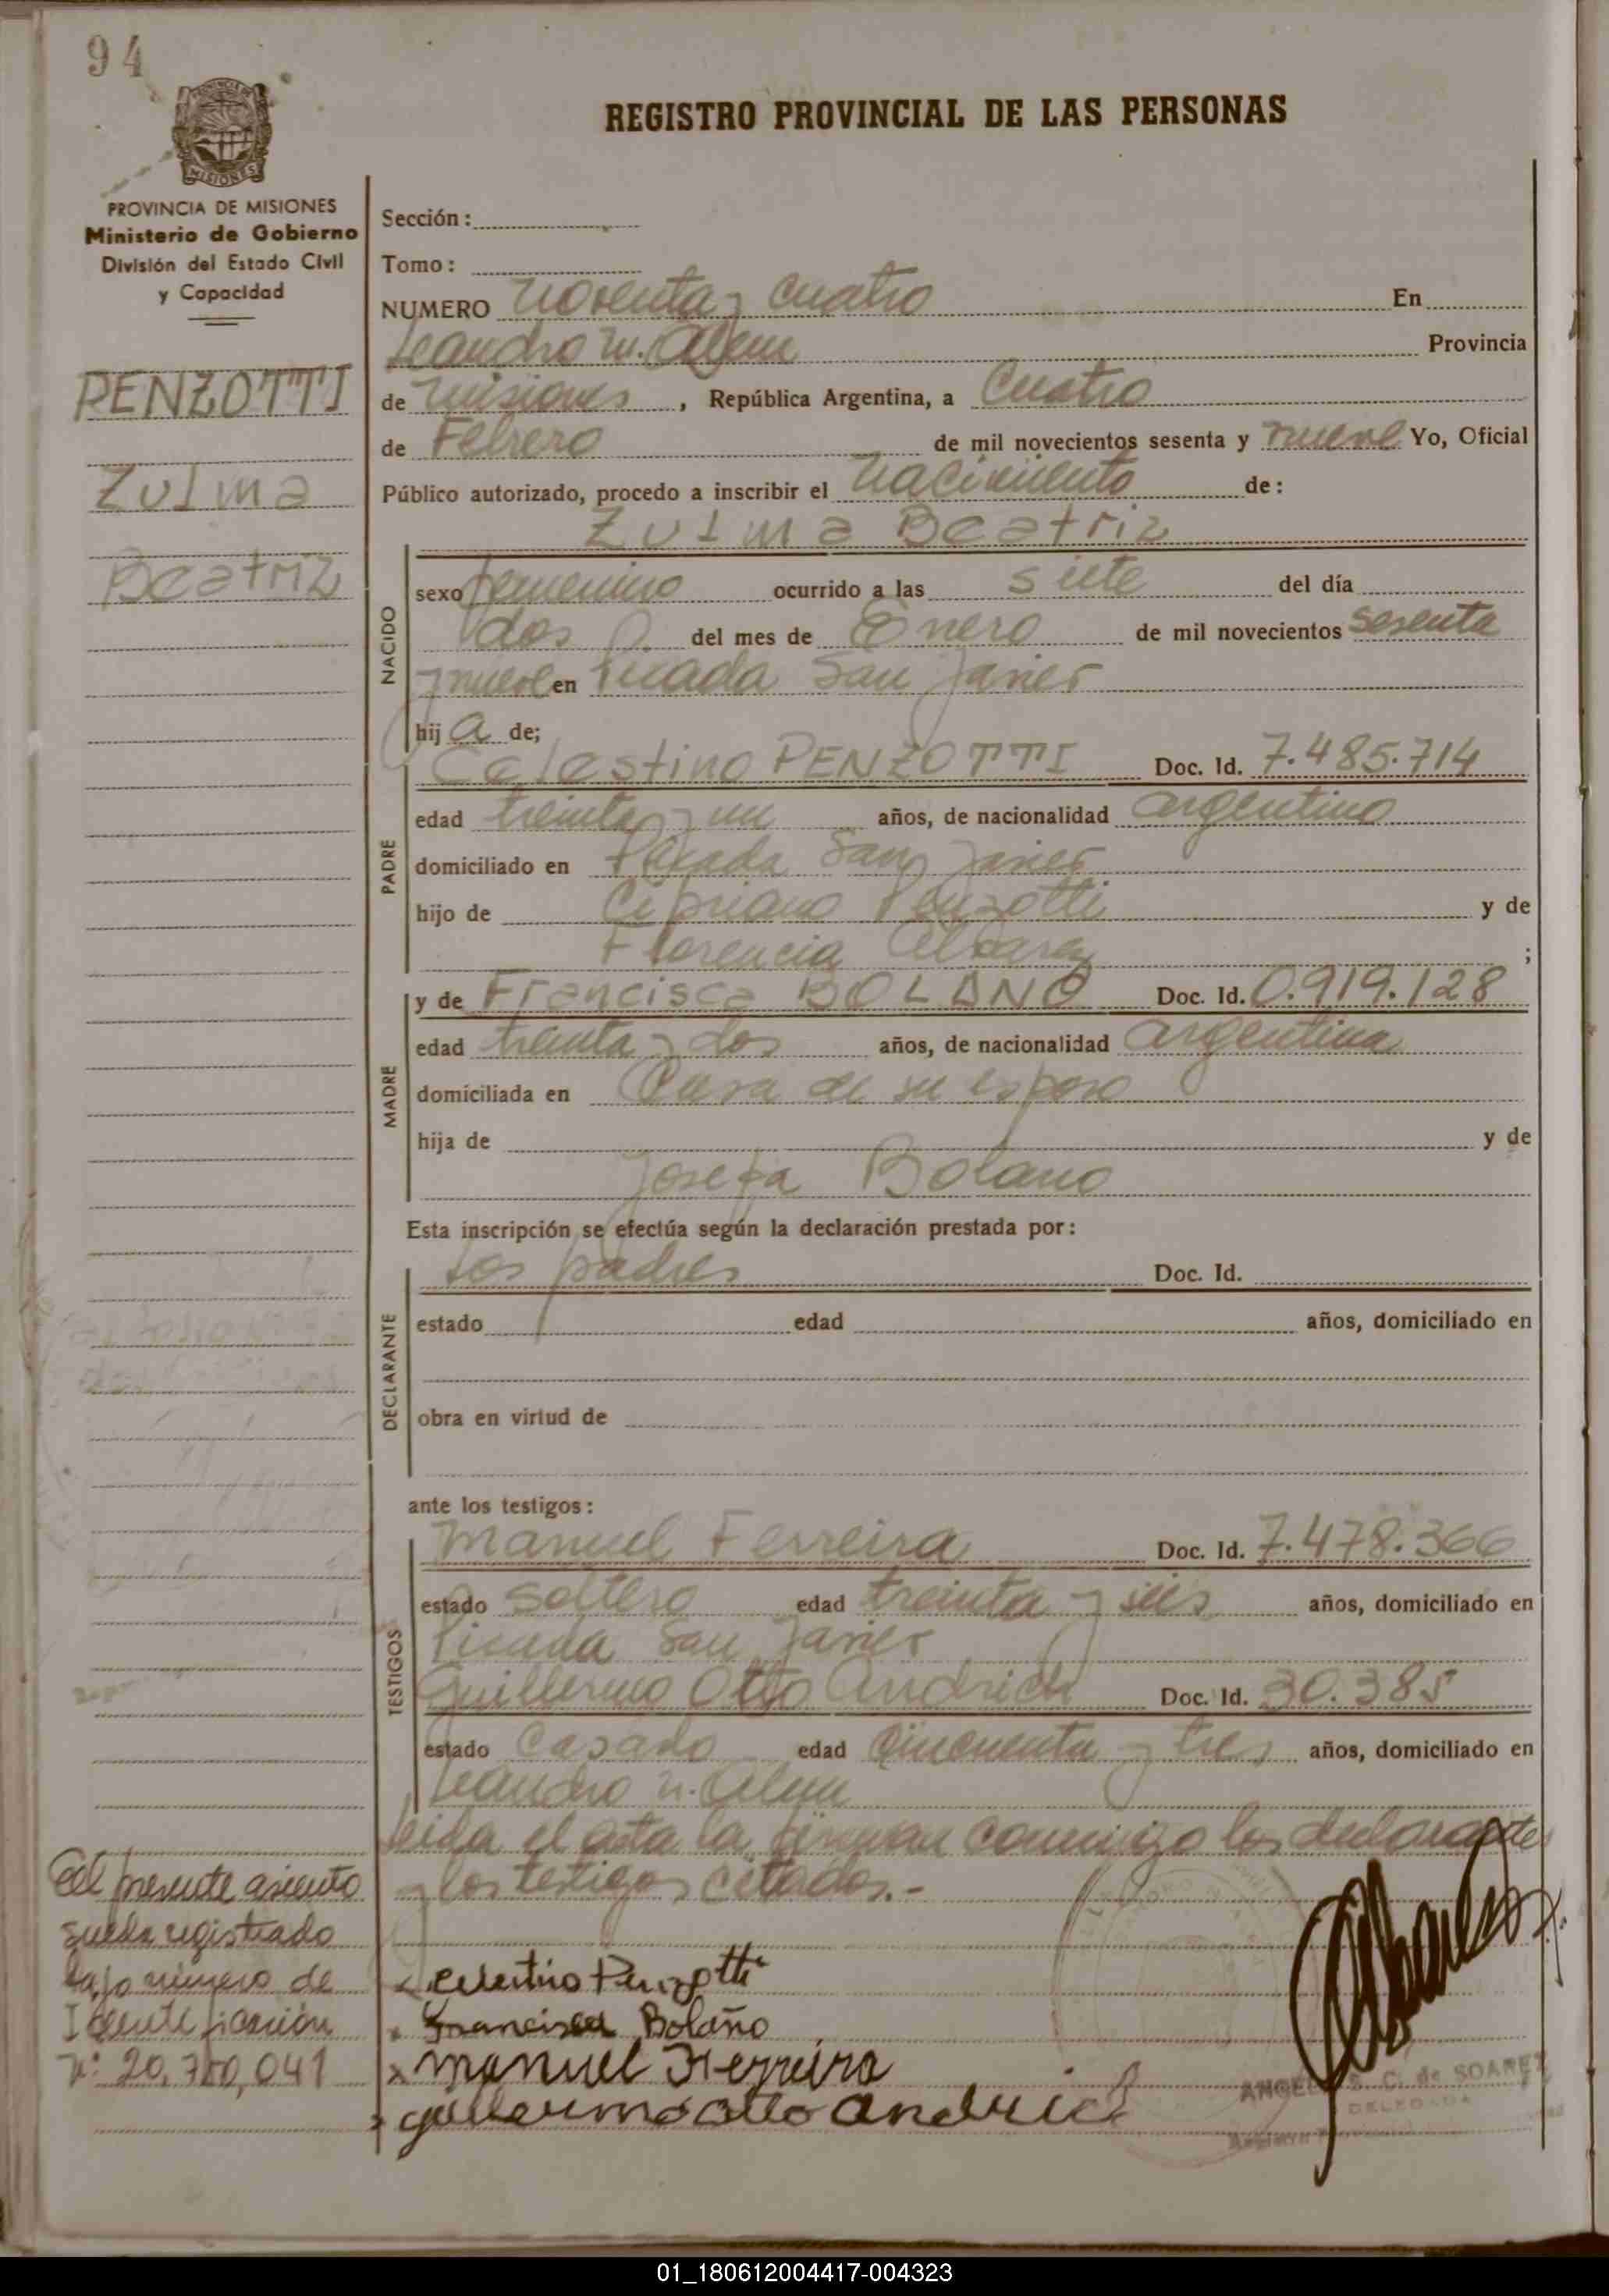 94
PROVINCIA DE MISIONES
Ministerio de Gobierno
División del Estado Civil
y Capacidad
REGISTRO PROVINCIAL DE LAS PERSONAS
Sección:
Tomo:
NUMERO Noventa y cuatro En
Leandro N. Alem Provincia
de Misiones, República Argentina, a Cuatro
de Febrero de mil novecientos sesenta y nueve Yo, Oficial
Público autorizado, procedo a inscribir el Nacimiento de:
Zulma Beatriz
PENZOTTI
Zulma
Beatriz
NACIDO
sexo femenino ocurrido a las siete del día
dos del mes de Enero de mil novecientos sesenta
y nueve en Picada San Javier
hija de;
PADRE
Celestino PENZOTTI Doc. Id. 7.485.714
edad treinta y un años, de nacionalidad argentino
domiciliado en Picada San Javier
hijo de Cipriano Penzotti y de
Florencia Alvarez;
MADRE
y de Francisca BOLAÑO Doc. Id. 0.919.128
edad treinta y dos años, de nacionalidad argentina
domiciliada en Casa de su esposo
hija de y de
Josefa Bolano
Esta inscripción se efectúa según la declaración prestada por:
DECLARANTE
Los padres Doc. Id.
estado edad años, domiciliado en
obra en virtud de
ante los testigos:
TESTIGOS
Manuel Ferreira Doc. Id. 7.478.366
estado Soltero edad treinta y seis años, domiciliado en
Picada San Javier
Guillermo Otto Andrich Doc. Id. 30.385
estado Casado edad Cincuenta y tres años, domiciliado en
Leandro N. Alem
Leida el acta la firman conmigo los declarantes
y los testigos citados.-
El presente asiento
queda registrado
bajo número de
Identificación
N°: 20,700,041
Celestino Penzotti
Francisca Bolaño
manuel Ferreira
guillermo otto andrich
C. de SOAREZ
DELEGADA
01_180612004417-004323